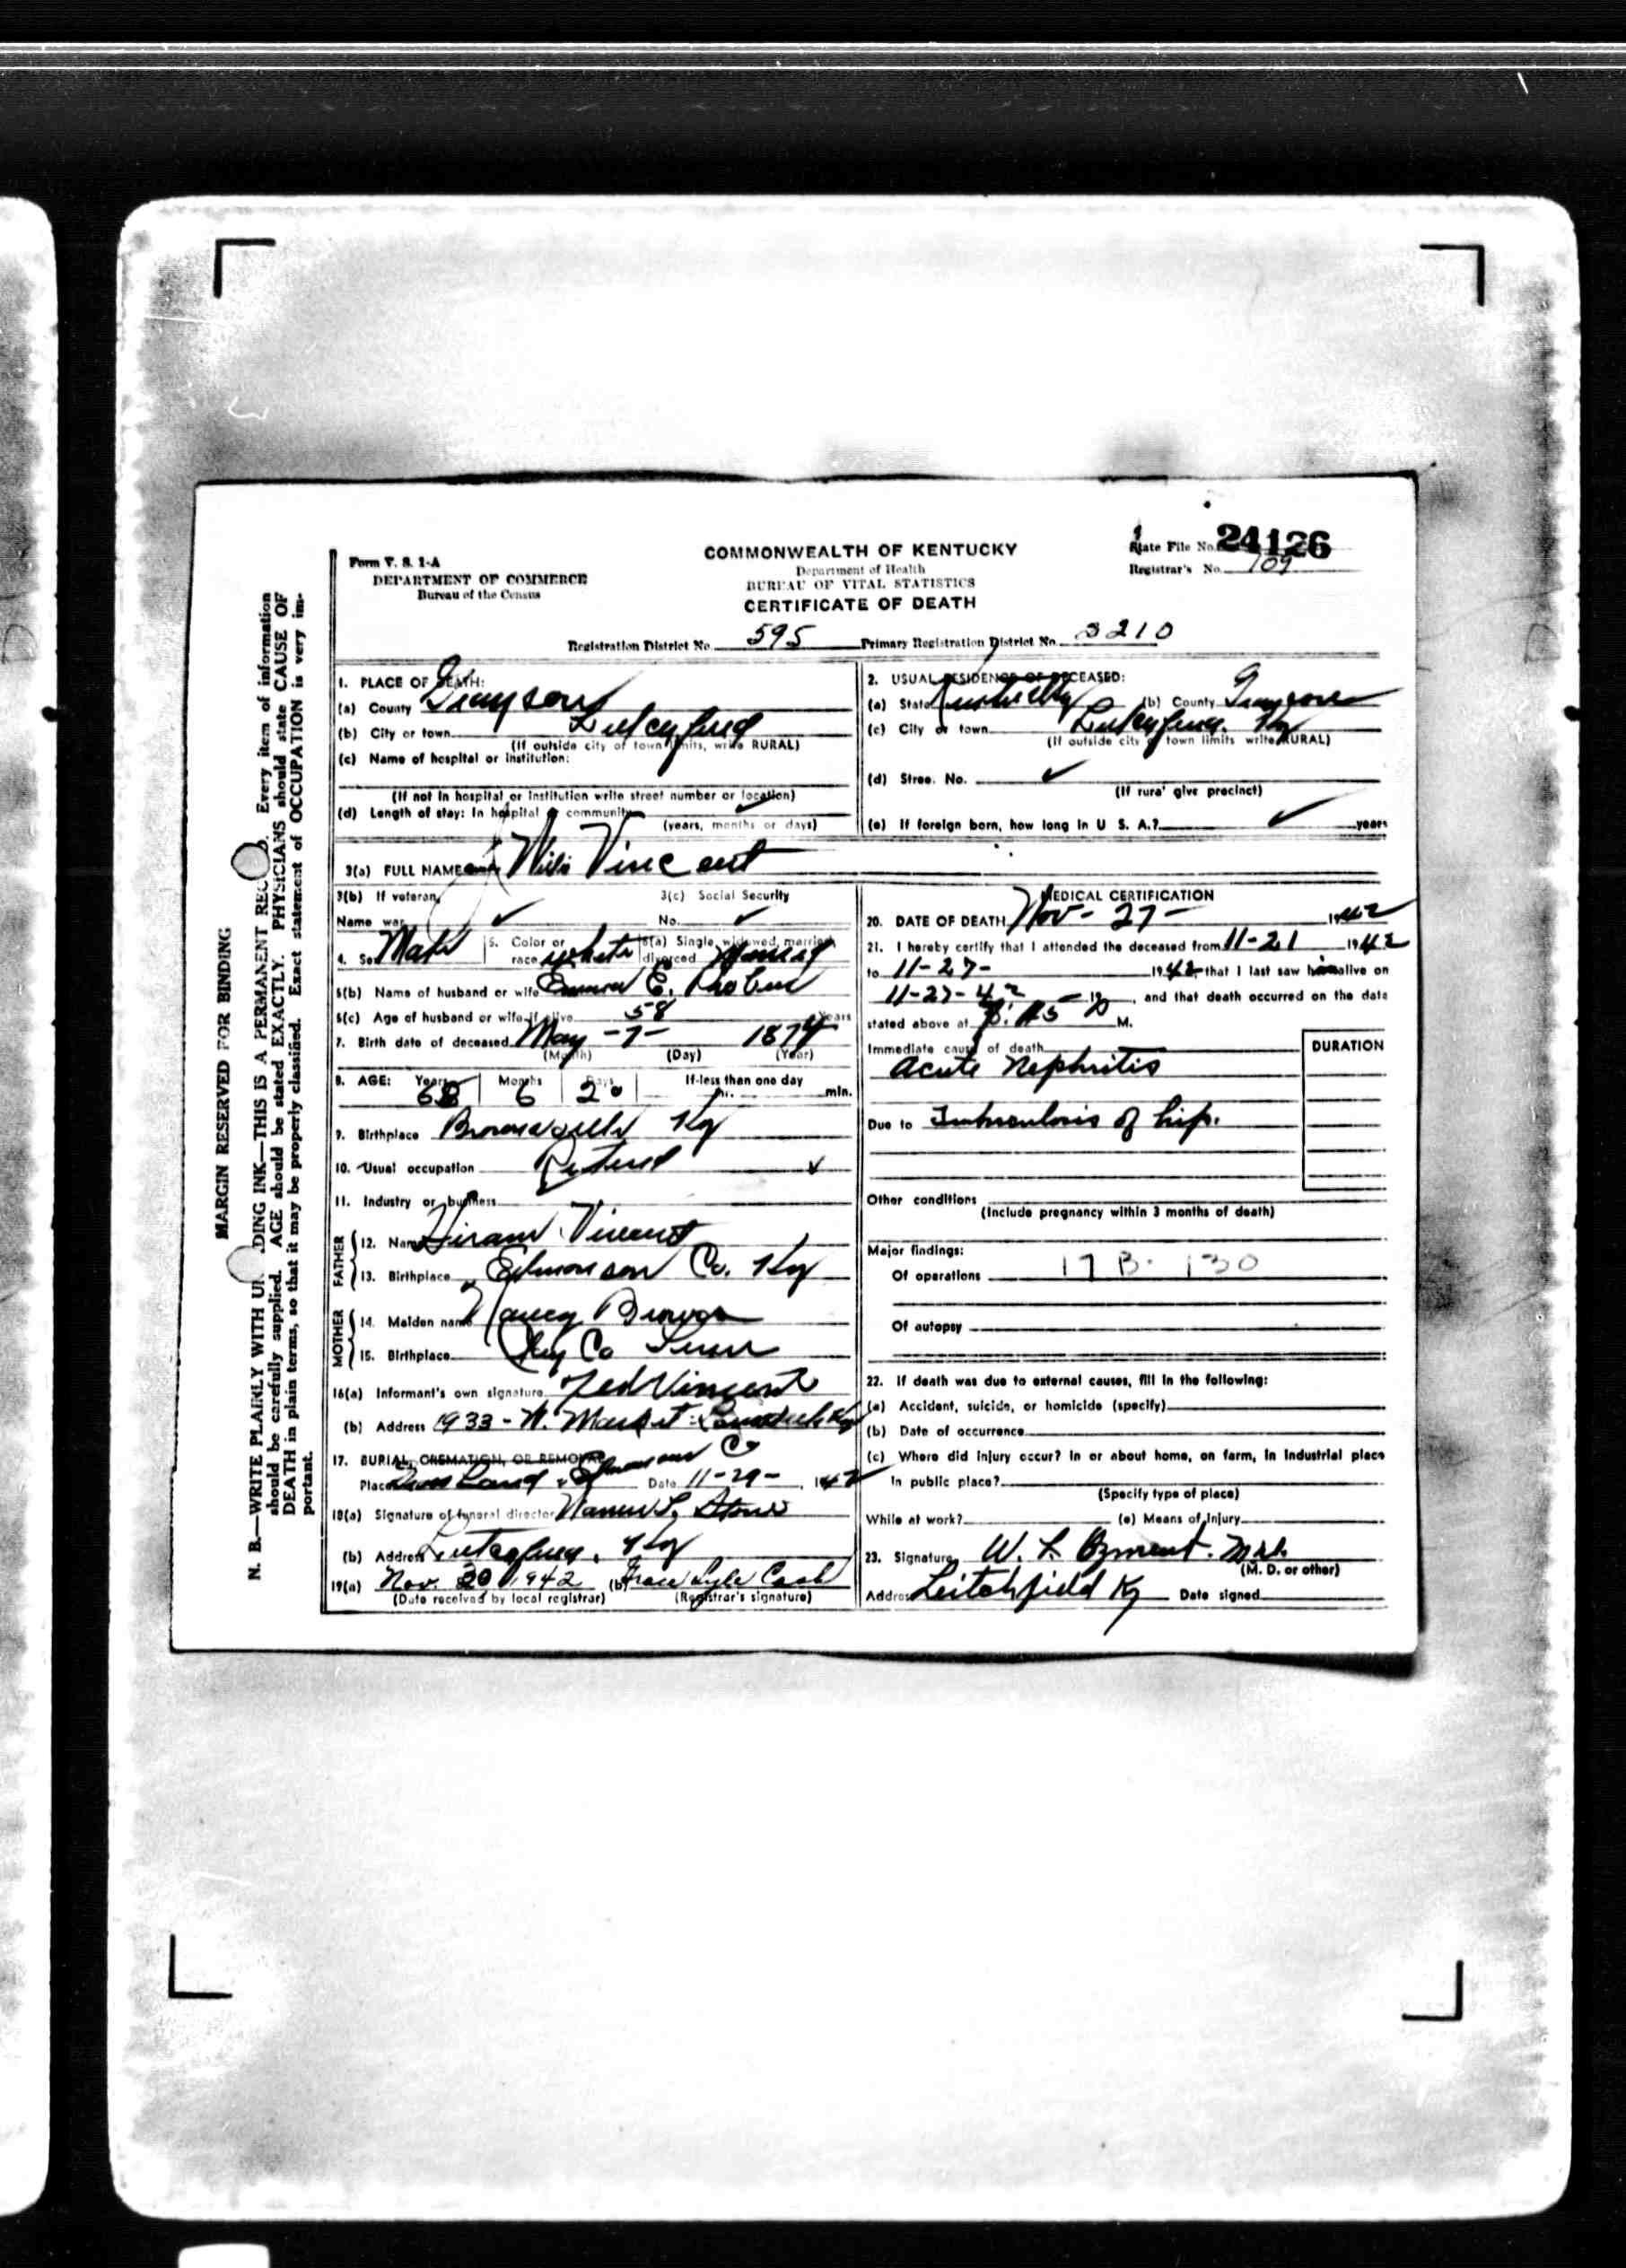 State File No. 24126
Form V. S. 1-A
COMMONWEALTH OF KENTUCKY
DEPARTMENT OF COMMERCE
Department of Health
Registrar's No. 109
Bureau of the Census
BUREAU OF VITAL STATISTICS
CERTIFICATE OF DEATH
Registration District No. 595 Primary Registration District No. 3210
MARGIN RESERVED FOR BINDING
N. B.—WRITE PLAINLY WITH DING INK—THIS IS A PERMANENT REC Every item of information
should be carefully supplied. AGE should be stated EXACTLY. PHYSICIANS should state CAUSE OF
DEATH in plain terms, so that it may be properly classified. Exact statement of OCCUPATION is very im-
portant.
1. PLACE OF DEATH:
(a) County Grayson
(b) City or town
(If outside city or town limits, write RURAL)
(c) Name of hospital or institution:
(If not in hospital or institution write street number or location)
(d) Length of stay: In hospital or community
(years, months or days)
2. USUAL RESIDENCE OF DECEASED:
(a) State Kentucky (b) County Grayson
(c) City or town Ky
(If outside city or town limits write RURAL)
(d) Stree. No.
(If rura' give precinct)
(e) If foreign born, how long in U S. A.? years
3(a) FULL NAME Vincent
3(b) If veteran,
Name war
3(c) Social Security
No.
4. Sex Male 5. Color or race white 6(a) Single, widowed, married, divorced Married
6(b) Name of husband or wife E.
6(c) Age of husband or wife if alive 58 Years
7. Birth date of deceased May -7- 1874
(Month) (Day) (Year)
8. AGE: Years 68 Months 6 Days 20 If less than one day hr. min.
9. Birthplace Brownsville Ky
10. Usual occupation Retired
11. Industry or business
FATHER
12. Name Hiram Vincent
13. Birthplace Edmonson Co. Ky
MOTHER
14. Maiden name Nancy
15. Birthplace Co
16(a) Informant's own signature Ted Vincent
(b) Address 1933 - W. Market Ky
17. BURIAL, CREMATION, OR REMOVAL
Place Edmonson Co Date 11-29- 1942
18(a) Signature of funeral director
(b) Address Ky
19(a) Nov. 30 1942 (b) Grace Lyle Cash
(Date received by local registrar) (Registrar's signature)
MEDICAL CERTIFICATION
20. DATE OF DEATH Nov - 27 - 1942
21. I hereby certify that I attended the deceased from 11-21 1942
to 11-27- 1942 that I last saw him alive on
11-27-42 19 , and that death occurred on the date
stated above at M.
Immediate cause of death DURATION
Acute Nephritis
Due to Tuberculosis of hip.
Other conditions
(Include pregnancy within 3 months of death)
Major findings:
Of operations 17 B. 130
Of autopsy
22. If death was due to external causes, fill in the following:
(a) Accident, suicide, or homicide (specify)
(b) Date of occurrence
(c) Where did injury occur? In or about home, on farm, in industrial place
in public place?
(Specify type of place)
While at work? (e) Means of injury
23. Signature W. L.
(M. D. or other)
Address Leitchfield Ky Date signed